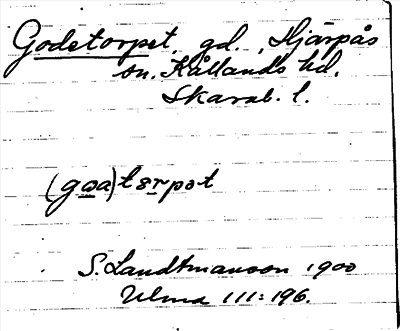 Godetorpet, gd., Hjärpås
sn. Kållands hd.
Skarab. l.
(goa)tɵrpɘt
S. Landtmanson 1900
Ulma 111:196.